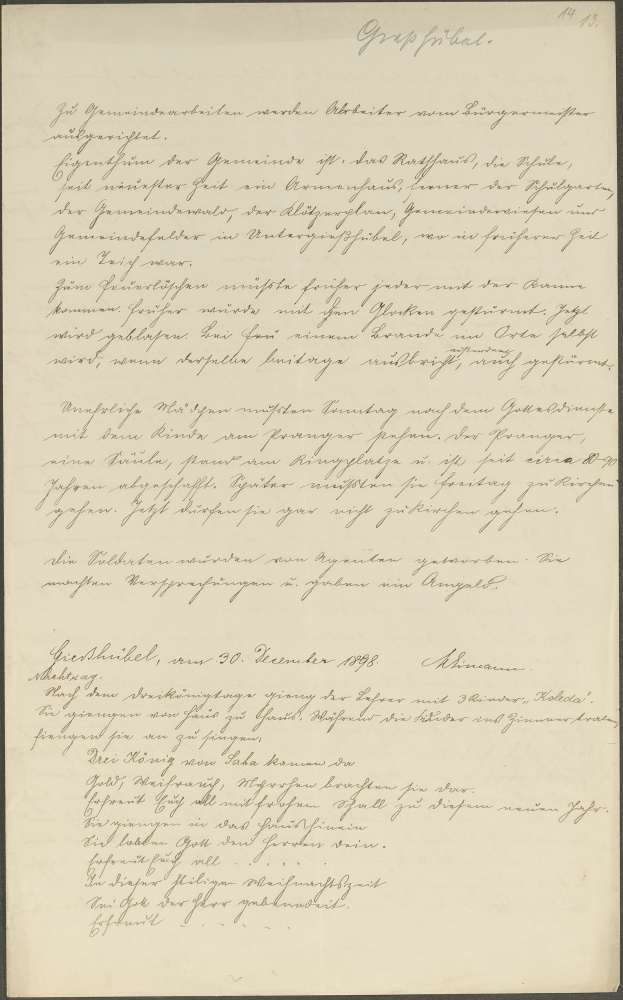 14 13.
Gießhübel.
Zu Gemeindearbeiten werden Arbeiter vom Bürgermeister
ausgerichtet.
Eigenthum der Gemeinde ist: das Rathhaus, die Schule,
seit neuester Zeit ein Armenhaus, ferner der Schulgarten,
der Gemeindewald, der Klötzerplan, Gemeindewiesen und
Gemeindefelder in Untergießhübel, wo in früherer Zeit
ein Teich war.
Zum Feuerlöschen mußte früher jeder mit der Kanne
kommen. Früher wurde mit den Glocken gestürmt. Jetzt
wird geblasen. Bei einem Brande im Orte selbst
wird, wenn derselbe beitage ausbricht, auch gestürmt.
Unehrliche Mädchen mußten Sonntag nach dem Gottesdienste
mit dem Kinde am Pranger stehen. Der Pranger,
eine Säule, stand am Ringplatze u. ist seit circa 80-90
Jahren abgeschafft. Später mußten sie Freitag zu Kirchen
gehen. Jetzt dürfen sie gar nicht zu Kirchen gehen.
Die Soldaten wurden von Agenten geworben. Sie
machten Versprechungen u. gaben ein Angeld.
Gießhübel, am 30. December 1898.
Nachtrag.
Nach dem Dreikönigtage gieng der Lehrer mit 3 Kinder „Koleda“.
Sie giengen von Haus zu Haus. Während die Kinder ins Zimmer traten,
fiengen sie an zu singen:
Drei König von Saba kamen da
Gold, Weihrauch, Myrrhen brachten sie dar.
Erfreut Euch all mit frohem Schall zu diesem neuen Jahr.
Sie giengen in das Haus hinein
Sie lobten Gott den Herren dein.
Erfreut Euch all . . . . .
In dieser heiligen Weihnachtszeit
Sei Gott der Herr gebenedeit.
Erfreut . . . . . .